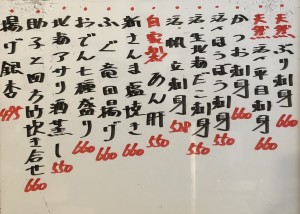 天然 ぶり刺身 660
天然 活〆平目刺身 660
かつお刺身 660
活〆ほうぼう刺身 550
活〆生北海だこ刺身 550
活〆帆立刺身 528
自家製 あん肝
新さんま塩焼き 660
ふぐ竜田揚げ 660
おでん七種盛り 660
北海アサリ酒蒸し 550
助子と四方竹炊き合せ 660
揚げ銀杏 495